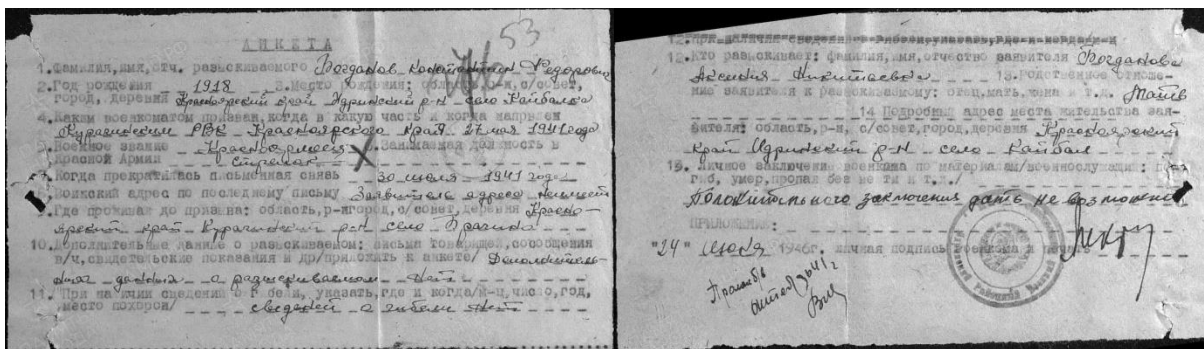 53
АНКЕТА
1. Фамилия, имя, отч. разыскиваемого Богданов Константин Федорович
2. Год рождения 1918 3. Место рождения: область, р-н, с/совет,
город, деревня Красноярский край Идринский р-н село Кайбалы
4. Каким военкоматом призван, когда в какую часть и когда направлен
Курагинским РВК Красноярского края 27 мая 1941 года
5. Военное звание Красноармеец 6. Занимаемая должность в
Красной Армии Стрелок
7. Когда прекратилась письменная связь 30 июля 1941 года
8. Воинский адрес по последнему письму Заявитель адреса не имеет
9. Где проживал до призыва: область, р-н город, с/совет, деревня Красно-
ярский край Курагинский р-н село
10. Дополнительные данные о разыскиваемом: письма товарищей, сообщения
в/ч, свидетельские показания и др/приложить к анкете/ Дополнитель-
ных данных о разыскиваемом нет
11. При наличии сведений о гибели, указать, где и когда/м-ц, число, год,
место похорон/ сведений о гибели нет
12. Кто разыскивает: фамилия, имя, отчество заявителя Богданова
Аксиния Никитаевна 13. Родственное отноше-
ние заявителя к разыскиваемому: отец, мать, жена и т.д. Мать
14 Подробный адрес места жительства зая-
вителя: область, р-н, с/совет, город, деревня Красноярский
край Идринский р-н село Кайбал
15. Личное заключение военкома по материалам/военнослужащий:
гиб, умер, пропал без вести и т.п./
Положительного заключения дать не возможно
ПРИЛОЖЕНИЕ:
"24" июня 1946г. личная подпись военкома и печать